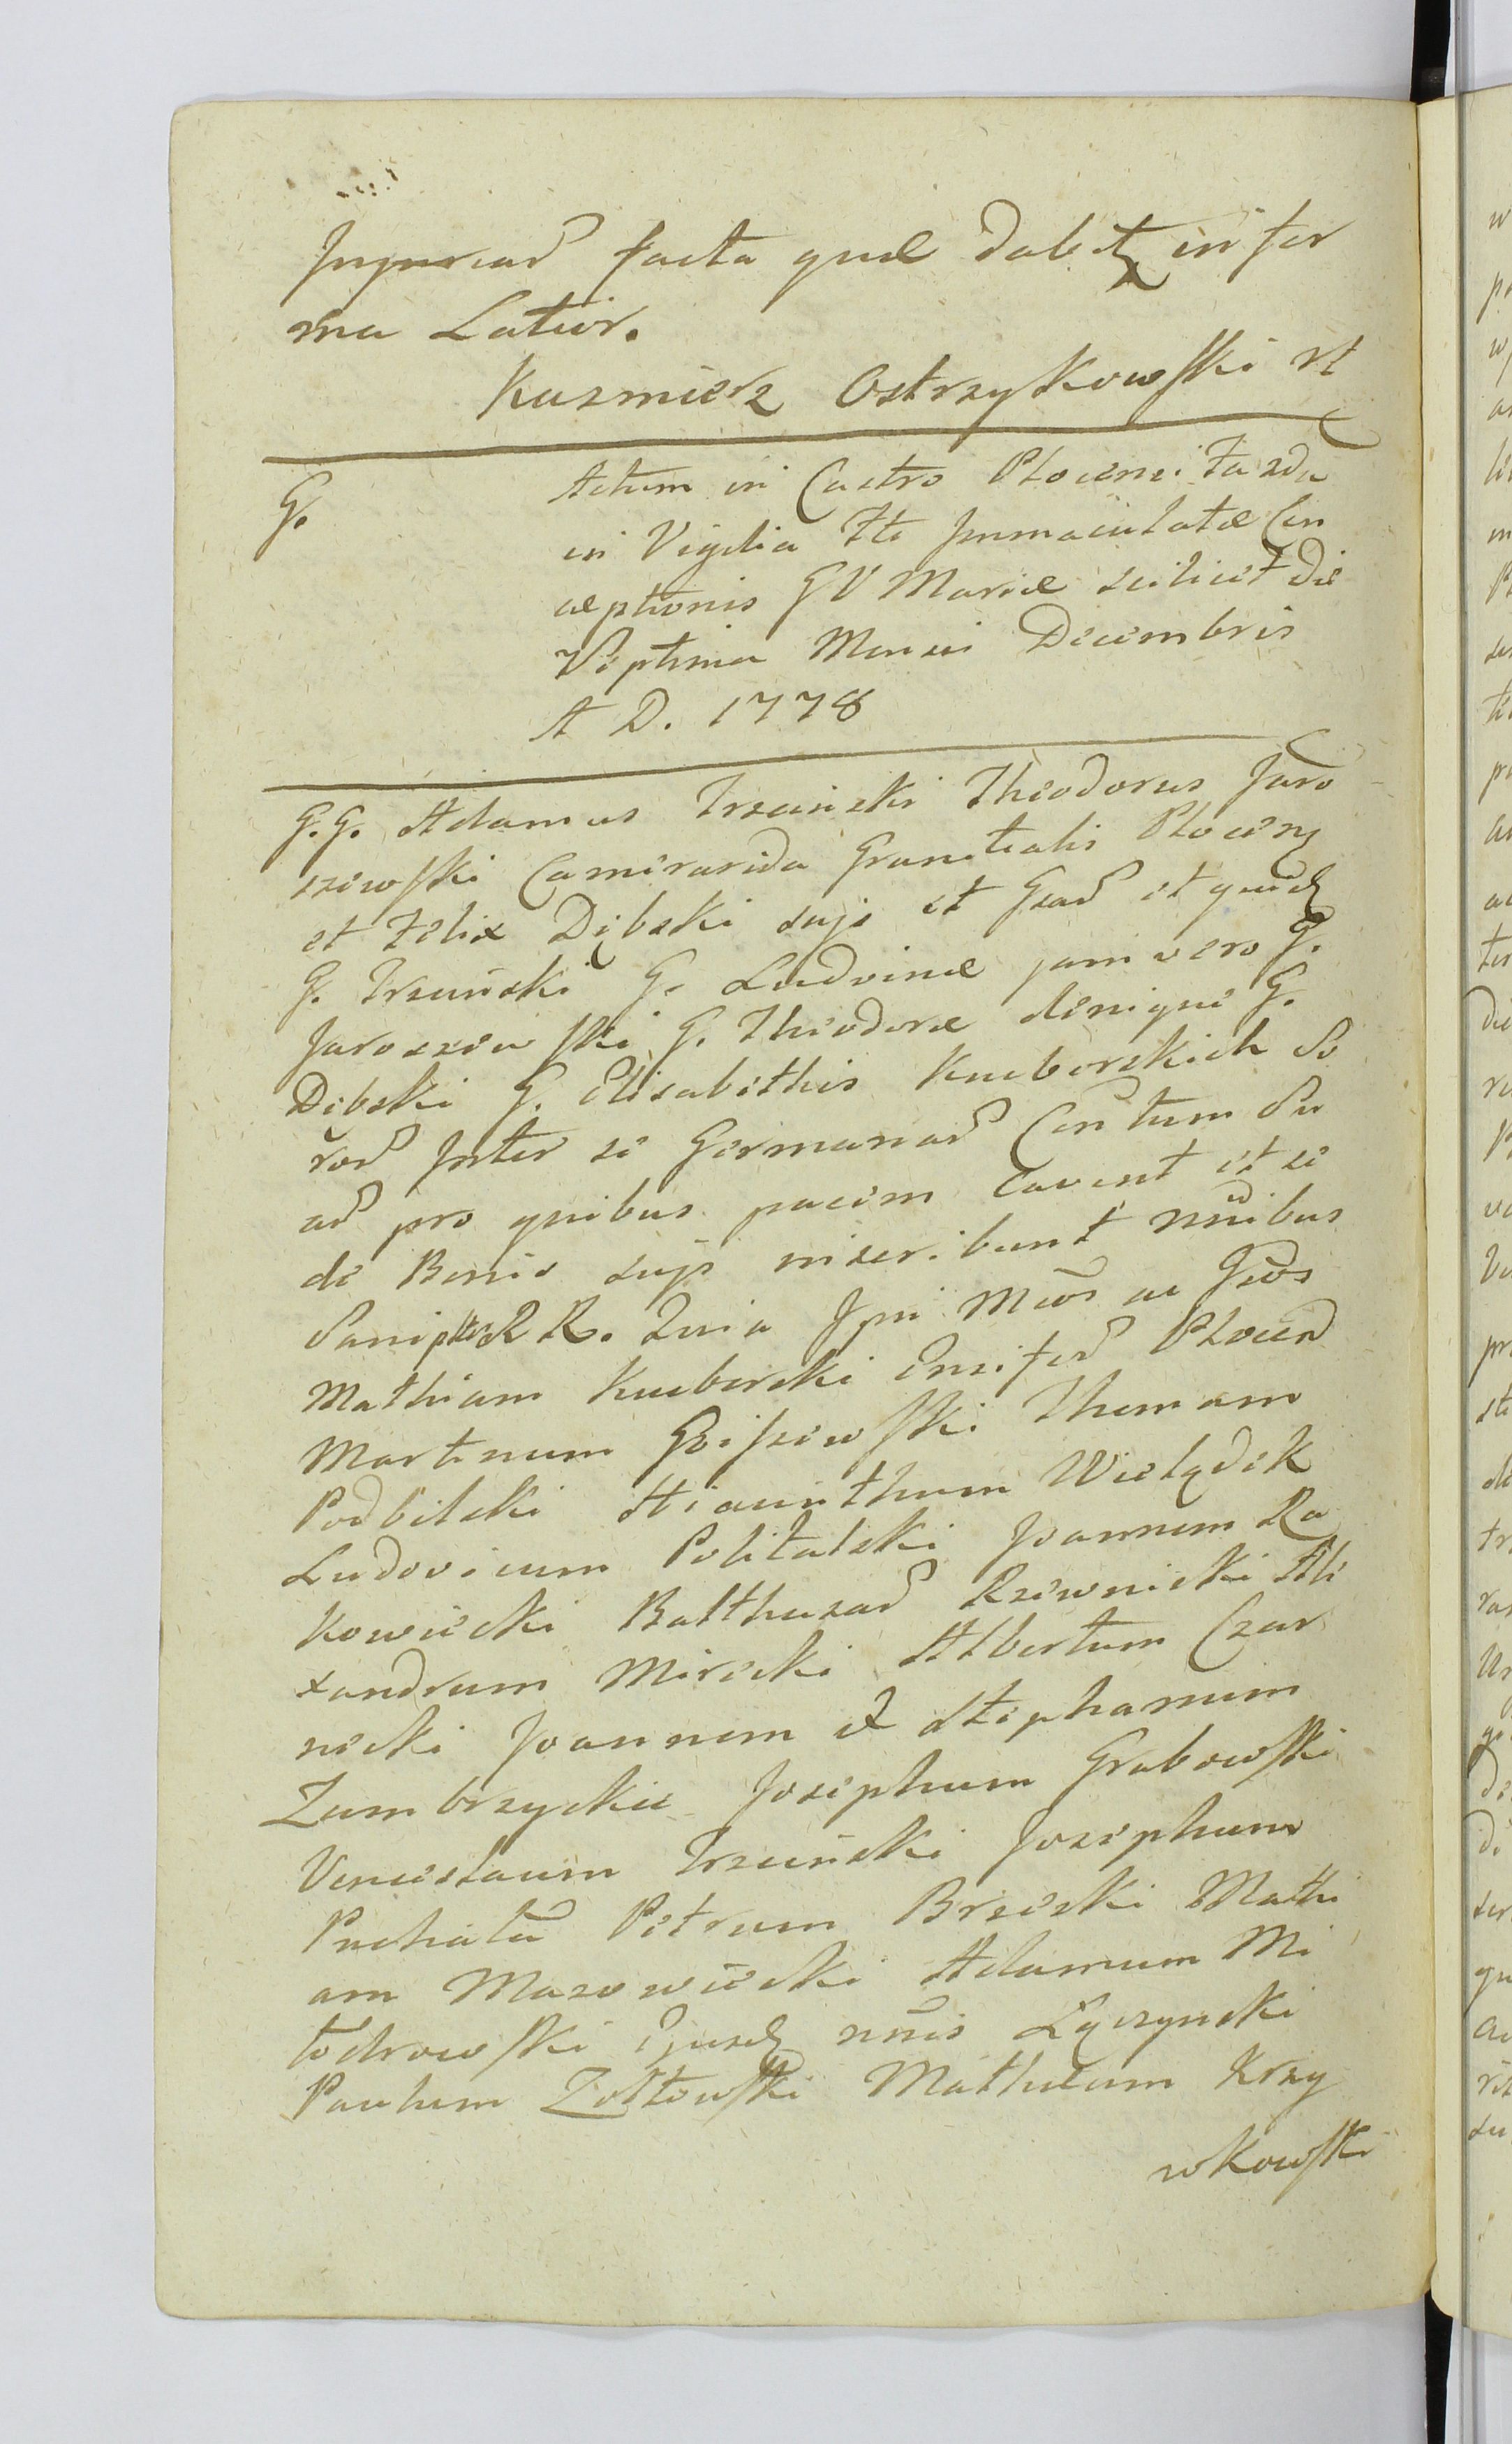 Injuriar facta quæ dabitz in for
ma Latior.
Kazmierz Ostrzykowski mp
G. Actum in Castro Plocensi Fa 2da
in Vigilia Fti Immaculatæ Con
ceptionis GV Mariæ scilicet Die
Septima Mensis Decembris
A D. 1778
G.G. Adamus Trzcinski Theodorus Jaro
szewski Camerarida Granitialis Plocens
et Felix Dębski sujs et Gzar et quidz
G. Trzcinski G. Ludvinæ jam vero G.
Jaroszewski G. Theodoræ denique G.
Dębski G. Elisabethis Kuborskich So
ror Inter se Germanar Con tum Su
ar pro quibus pacem cavent et se
de Bonis sujs inscribunt nnibus
Mathiam Kuborski Ensifer Plocen
Martinum Thomam
Podbilski Hiacinthum Wielądek
Ludovicum Politalski Joannem Ra
kowiecki Balthazar Rzewnicki Ale
xandrum Mirecki Albertum Czar
necki Joannem et Stephanum
Zambrzyckie Josephum Grabowski
Venceslaum Trzcinski Josephum
Puchała Petrum Brzeski Mathi
am Mazowiecki Adamum Mi
łodrowski Ejusdz nnis Łączynski
Paulum Zołtowski Mathæum Krzy
wkowski